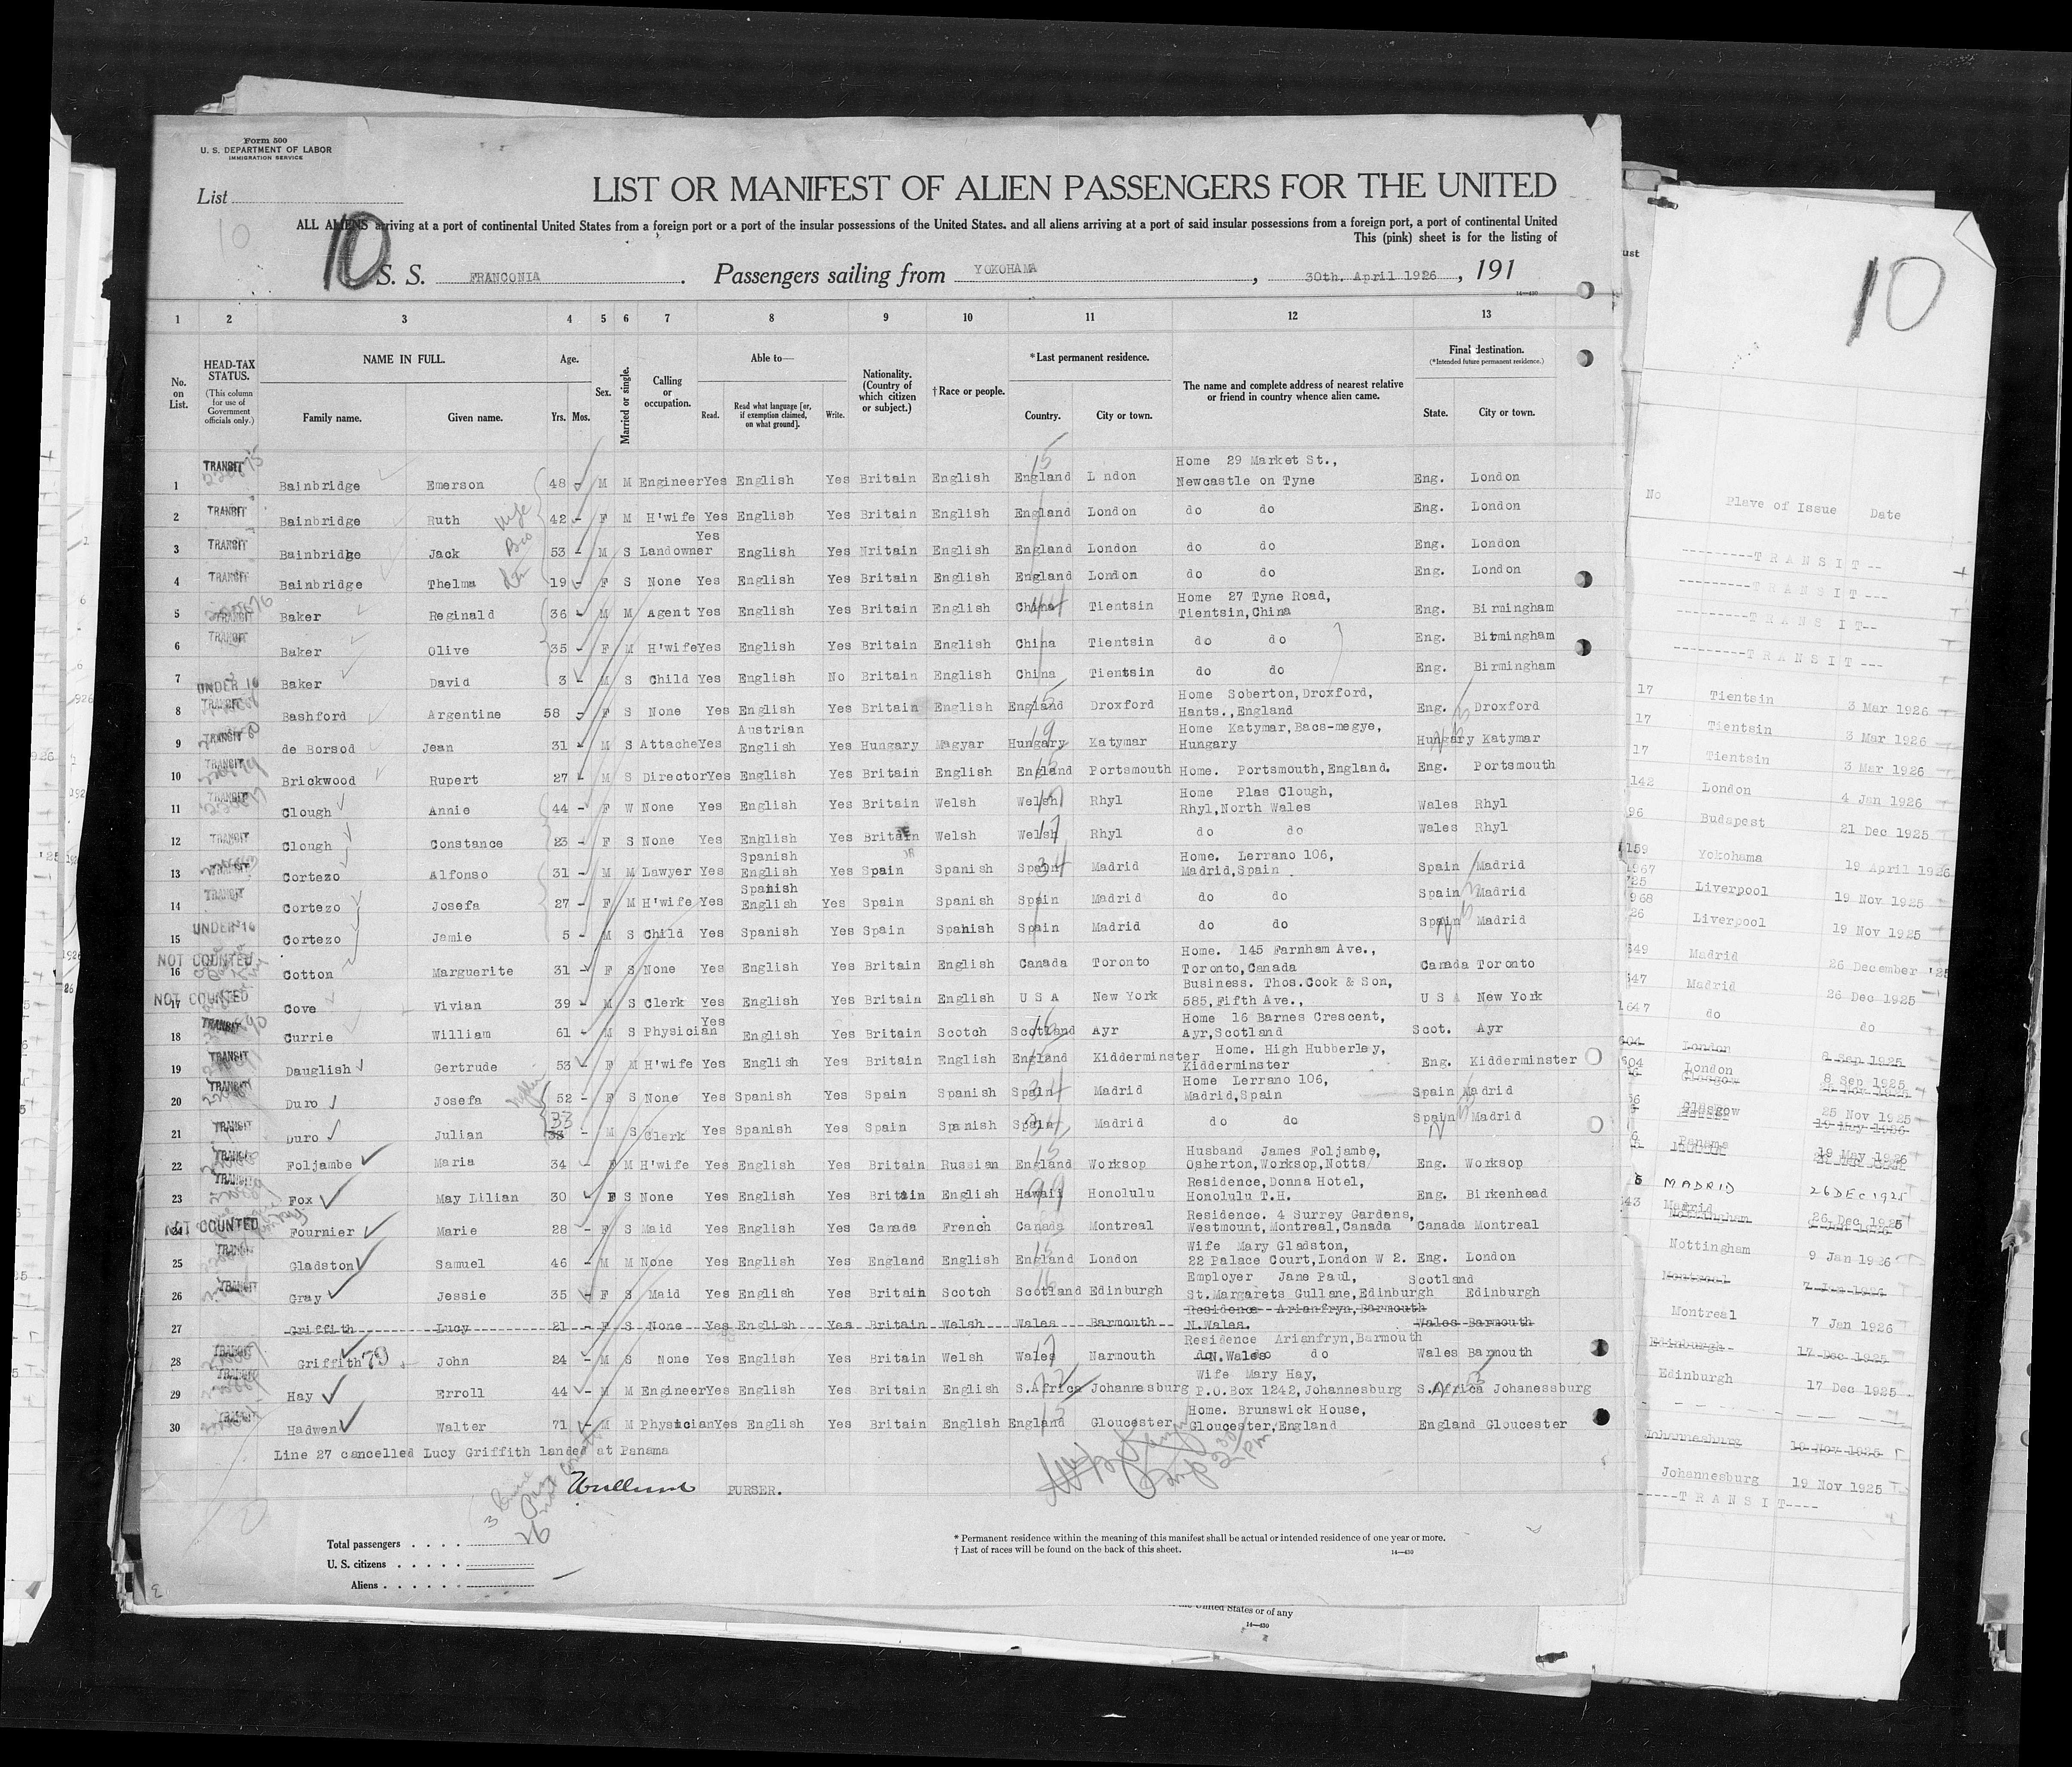 Form 500
U. S. DEPARTMENT OF LABOR
IMMIGRATION SERVICE
List
10
LIST OR MANIFEST OF ALIEN PASSENGERS FOR THE UNITED
ALL ALIENS arriving at a port of continental United States from a foreign port or a port of the insular possessions of the United States, and all aliens arriving at a port of said insular possessions from a foreign port, a port of continental United
This (pink) sheet is for the listing of
10
S. S. FRANCONIA. Passengers sailing from YOKOHAMA, 30th. April 1926, 191
14—430
1 2 3 4 5 6 7 8 9 10 11 12 13
No. on List.
HEAD-TAX STATUS.
(This column for use of Government officials only.)
NAME IN FULL.
Family name. Given name.
Age.
Yrs. Mos.
Sex.
Married or single.
Calling or occupation.
Able to—
Read. Read what language [or, if exemption claimed, on what ground]. Write.
Nationality. (Country of which citizen or subject.)
†Race or people.
*Last permanent residence.
Country. City or town.
The name and complete address of nearest relative or friend in country whence alien came.
Final destination.
(*Intended future permanent residence.)
State. City or town.
1 TRANSIT Bainbridge Emerson 48 M M Engineer Yes English Yes Britain English England L ndon Home 29 Market St., Newcastle on Tyne Eng. London
2 TRANSIT Bainbridge Ruth wife 42 F M H'wife Yes English Yes Britain English England London do do Eng. London
3 TRANSIT Bainbridge Jack Bro 53 M S Landowner Yes English Yes Nritain English England London do do Eng. London
4 TRANSIT Bainbridge Thelma 19 F S None Yes English Yes Britain English England London do do Eng. London
5 TRANSIT Baker Reginald 36 M M Agent Yes English Yes Britain English China Tientsin Home 27 Tyne Road, Tientsin,China Eng. Birmingham
6 TRANSIT Baker Olive 35 F M H'wife Yes English Yes Britain English China Tientsin do do Eng. Birmingham
7 UNDER 16 Baker David 3 M S Child Yes English No Britain English China Tientsin do do Eng. Birmingham
8 TRANSIT Bashford Argentine 58 F S None Yes English Yes Britain English England Droxford Home Soberton,Droxford, Hants.,England Eng. Droxford
9 TRANSIT de Borsod Jean 31 M S Attache Yes Austrian English Yes Hungary Magyar Hungary Katymar Home Katymar,Bacs-megye, Hungary Hungary Katymar
10 TRANSIT Brickwood Rupert 27 M S Director Yes English Yes Britain English England Portsmouth Home. Portsmouth,England. Eng. Portsmouth
11 TRANSIT Clough Annie 44 F W None Yes English Yes Britain Welsh Welsh Rhyl Home Plas Clough, Rhyl,North Wales Wales Rhyl
12 TRANSIT Clough Constance 23 F S None Yes English Yes Britain Welsh Welsh Rhyl do do Wales Rhyl
13 TRANSIT Cortezo Alfonso 31 M M Lawyer Yes Spanish English Yes Spain Spanish Spain Madrid Home. Lerrano 106, Madrid,Spain Spain Madrid
14 TRANSIT Cortezo Josefa 27 F M H'wife Yes Spanish English Yes Spain Spanish Spain Madrid do do Spain Madrid
15 UNDER 16 Cortezo Jamie 5 M S Child Yes Spanish Yes Spain Spanish Spain Madrid do do Spain Madrid
16 NOT COUNTED Cotton Marguerite 31 F S None Yes English Yes Britain English Canada Toronto Home. 145 Farnham Ave., Toronto,Canada Canada Toronto
17 NOT COUNTED Cove Vivian 39 M S Clerk Yes English Yes Britain English U S A New York Business. Thos.Cook & Son, 585,Fifth Ave., U S A New York
18 TRANSIT Currie William 61 M S Physician Yes English Yes Britain Scotch Scotland Ayr Home 16 Barnes Crescent, Ayr,Scotland Scot. Ayr
19 TRANSIT Dauglish Gertrude 53 F M H'wife Yes English Yes Britain English England Kidderminster Home. High Hubberley, Kidderminster Eng. Kidderminster
20 TRANSIT Duro Josefa 52 F S None Yes Spanish Yes Spain Spanish Spain Madrid Home Lerrano 106, Madrid,Spain Spain Madrid
21 TRANSIT Duro Julian 33 M S Clerk Yes Spanish Yes Spain Spanish Spain Madrid do do Spain Madrid
22 TRANSIT Foljambe Maria 34 F M H'wife Yes English Yes Britain Russian England Worksop Husband James Foljambe, Osherton,Worksop,Notts Eng. Worksop
23 TRANSIT Fox May Lilian 30 F S None Yes English Yes Britain English Hawaii Honolulu Residence,Donna Hotel, Honolulu T.H. Eng. Birkenhead
24 NOT COUNTED Fournier Marie 28 F S Maid Yes English Yes Canada French Canada Montreal Residence. 4 Surrey Gardens, Westmount,Montreal,Canada Canada Montreal
25 TRANSIT Gladston Samuel 46 M M None Yes English Yes England English England London Wife Mary Gladston, 22 Palace Court,London W 2. Eng. London
26 TRANSIT Gray Jessie 35 F S Maid Yes English Yes Britain Scotch Scotland Edinburgh Employer Jane Paul, St.Margarets Gullane,Edinburgh Scotland Edinburgh
27 Griffith Lucy 21 F S None Yes English Yes Britain Welsh Wales Barmouth Residence Arianfryn,Barmouth N.Wales. Wales Barmouth
28 TRANSIT Griffith 79 John 24 M S None Yes English Yes Britain Welsh Wales Narmouth Residence Arianfryn,Barmouth N.Wales do do do Wales Barmouth
29 TRANSIT Hay Erroll 44 M M Engineer Yes English Yes Britain English S.Africa Johannesburg Wife Mary Hay, P.O.Box 1242,Johannesburg S.Africa Johanessburg
30 TRANSIT Hadwen Walter 71 M M Physician Yes English Yes Britain English England Gloucester Home. Brunswick House, Gloucester,England England Gloucester
Line 27 cancelled Lucy Griffith landed at Panama
PURSER.
26
Total passengers
U. S. citizens
Aliens
* Permanent residence within the meaning of this manifest shall be actual or intended residence of one year or more.
† List of races will be found on the back of this sheet.
14—430
the United States or of any
14—430
10
No Plave of Issue Date
---------T R A N S I T--
---------T R A N S I T---
---------T R A N S I T--
---------T R A N S I T---
17 Tientsin 3 Mar 1926
17 Tientsin 3 Mar 1926
17 Tientsin 3 Mar 1926
142 London 4 Jan 1926
96 Budapest 21 Dec 1925
159 Yokohama 19 April 1926
Liverpool 19 Nov 1925
Liverpool 19 Nov 1925
549 Madrid 26 December '25
547 Madrid 26 Dec 1925
1647 do do
604 London 8 Sep 1925
604 London 8 Sep 1925
Glasgow 25 Nov 1925
Glasgow 25 Nov 1925
Panama 19 May 1926
MADRID 26 DEC 1925
43 Madrid 26 Dec 1925
Nottingham 9 Jan 1926
Nottingham 9 Jan 1926
Montreal 7 Jan 1926
Montreal 7 Jan 1926
Edinburgh 17 Dec 1925
Edinburgh 17 Dec 1925
Johannesburg 19 Nov 1925
Johannesburg 19 Nov 1925
-----T R A N S I T----